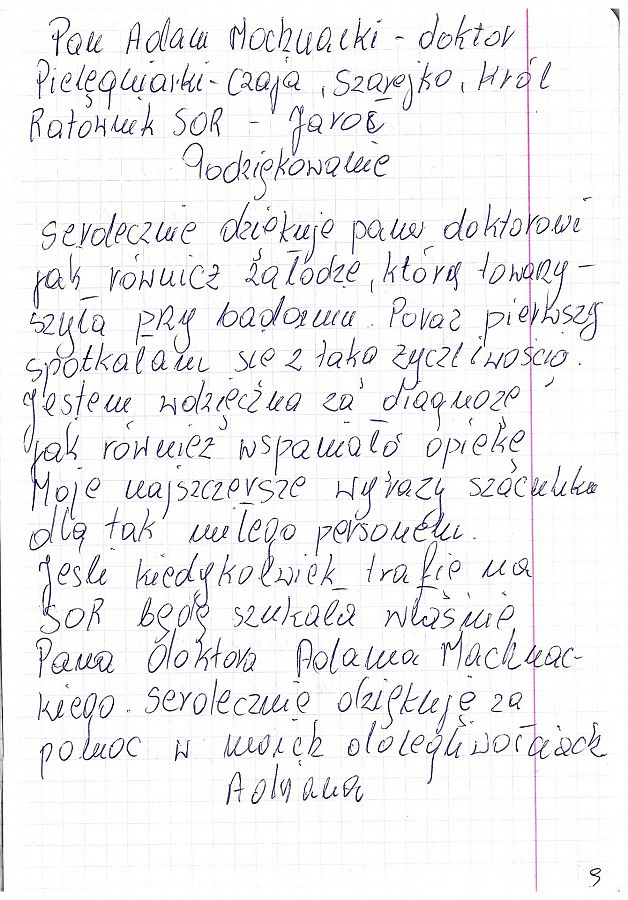 Pan Adam Mochnacki - doktor
Pielęgniarki - Czaja, Szarejko, Król
Ratownik SOR - Jaroć
Podziękowanie
Serdecznie dziękuje panu doktorowi
jak również załodze, którą towarzy-
szyła przy badaniu. Poraz pierwszy
spotkałam się z tako życzliwościo.
Jestem wdzięczna za diagnozę
jak również wspaniało opiekę
Moje najszczersze wyrazy szacunku
dla tak miłego personelu.
Jeśli kiedykolwiek trafię na
SOR będę szukała właśnie
Pana doktora Adama Machnac-
kiego. Serdecznie dziękuję za
pomoc w moich dolegliwościach
Adriana
9